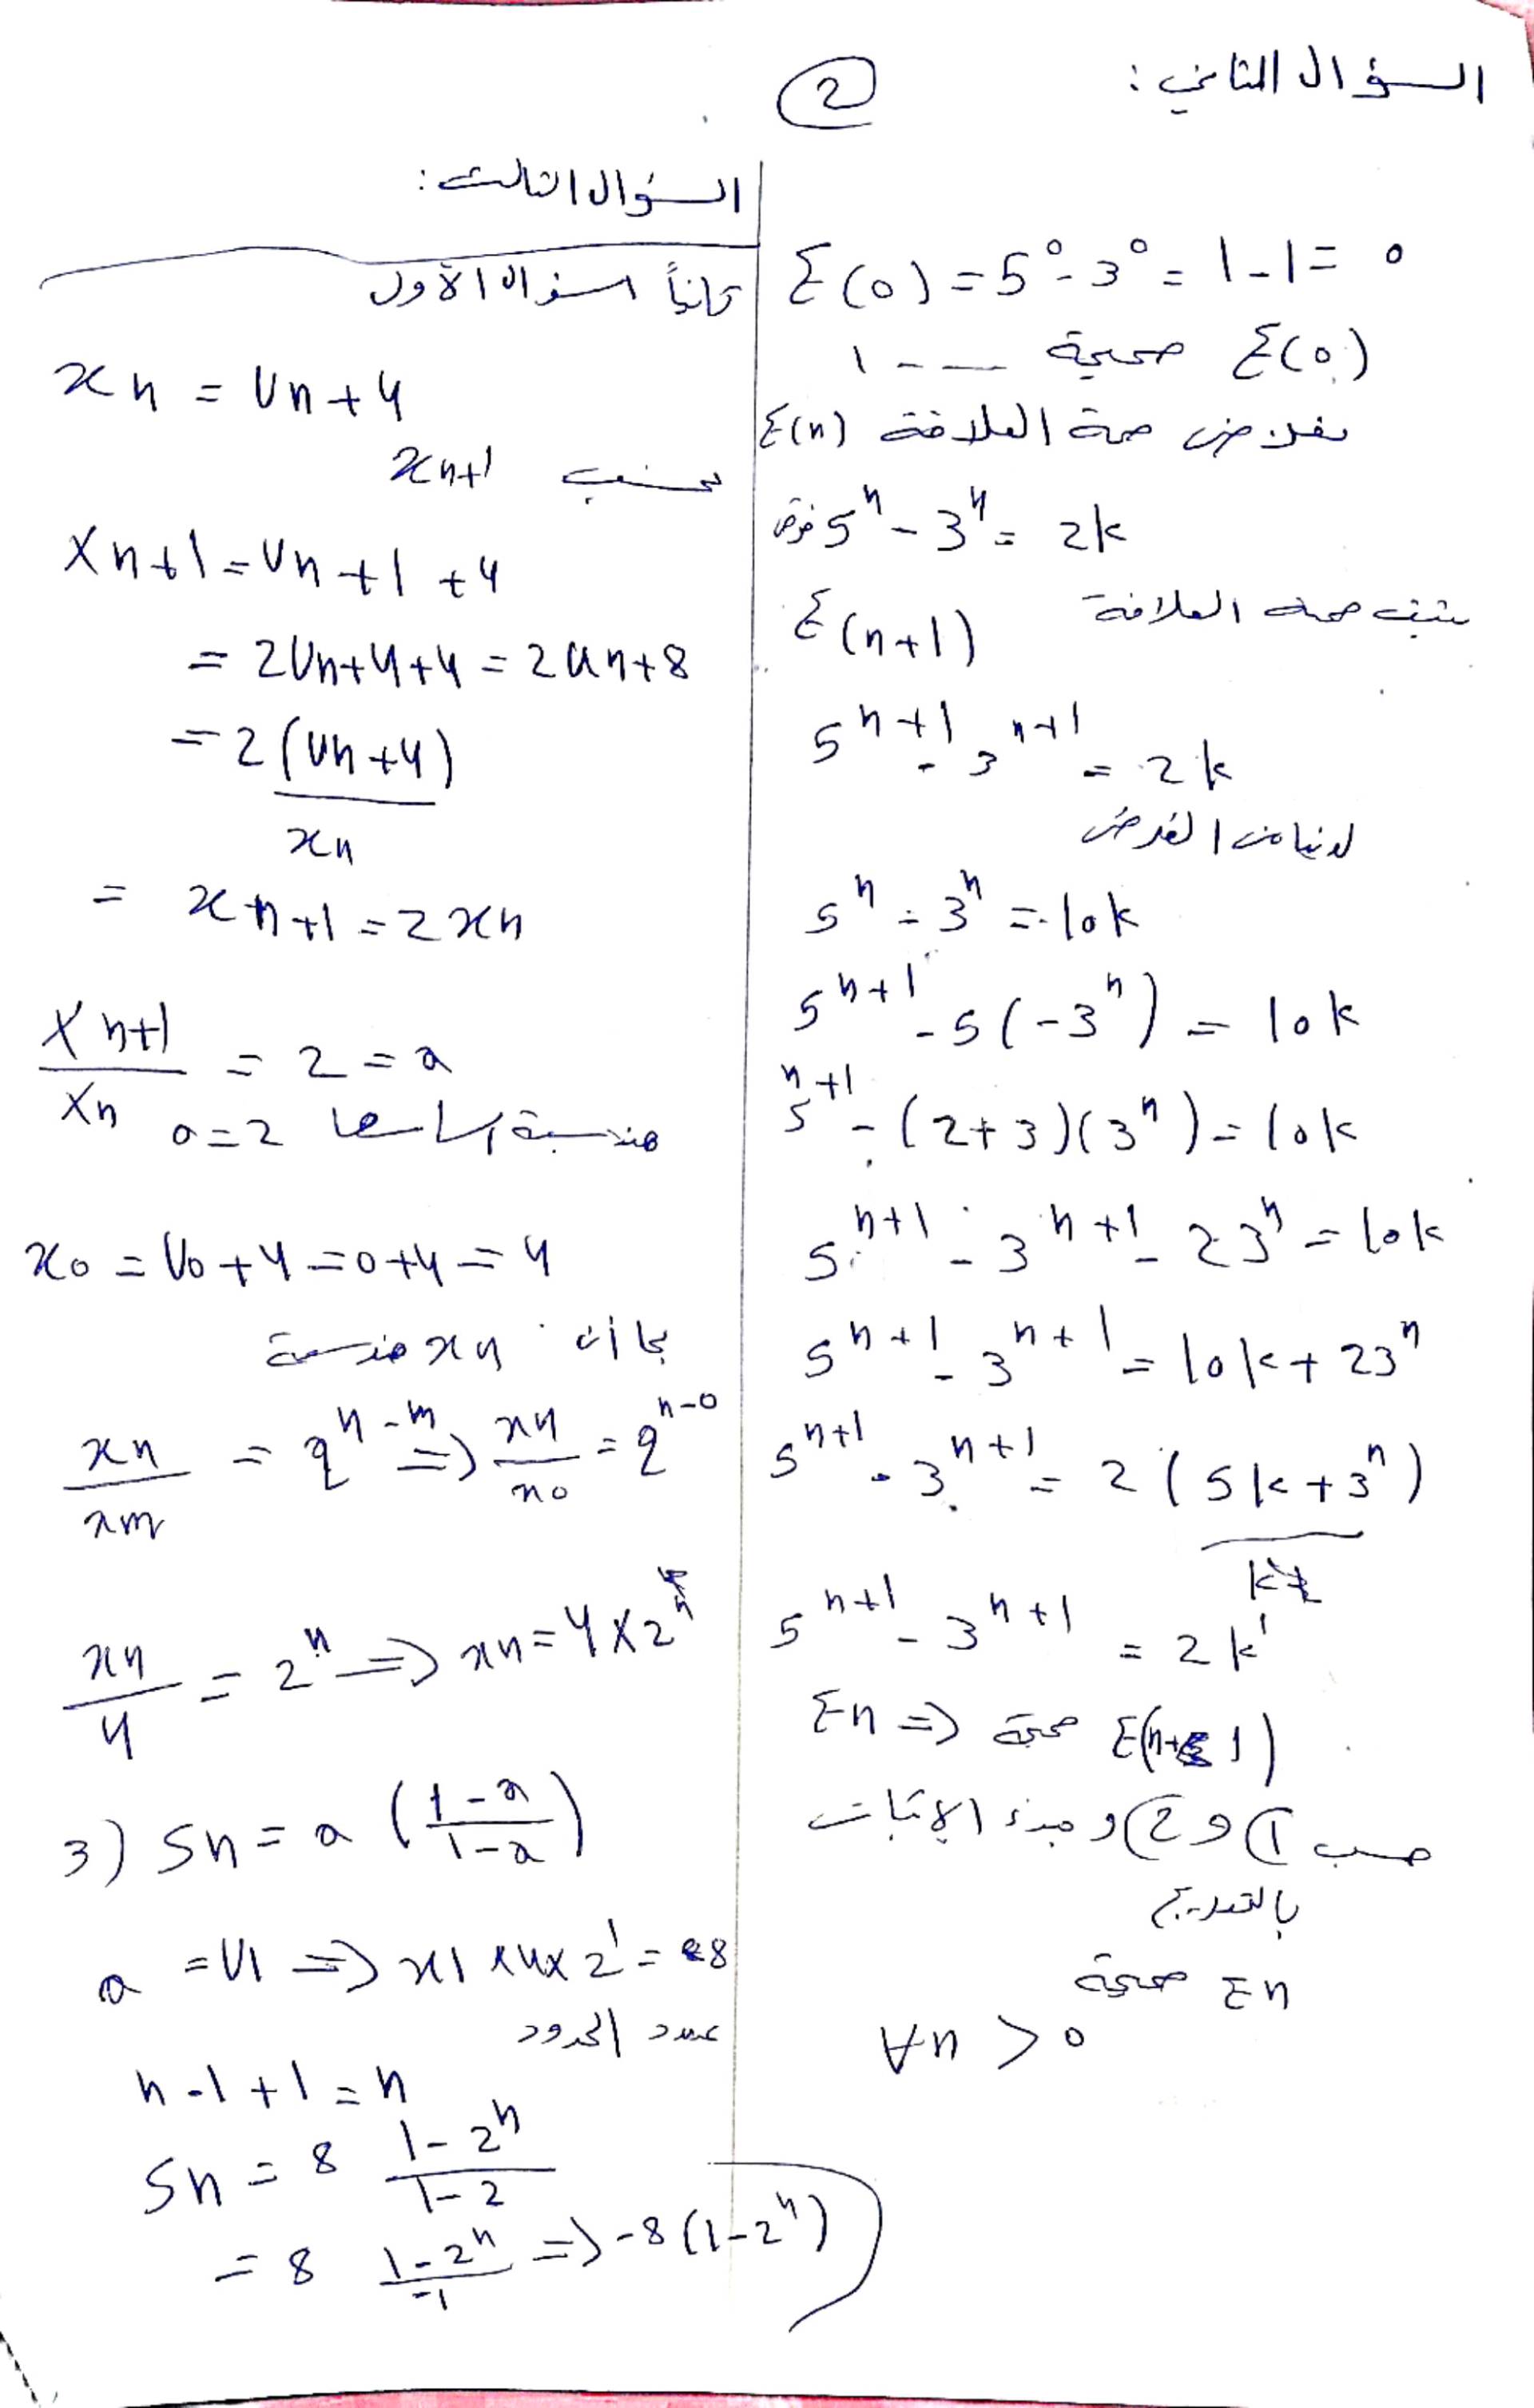 السؤال الثاني :
2
E(0) = 5^0 - 3^0 = 1 - 1 = 0
E(0) صحيحة --- 1
نفلاض صحة العلاقة E(n)
5^n - 3^n = 2k فرض
نثبت صحة العلاقة
E(n+1)
5^{n+1} - 3^{n+1} = 2k
لدينا من الفرض
5^n - 3^n = 10k
5^{n+1} - 5(-3^n) = 10k
5^{n+1} - (2+3)(3^n) = 10k
5^{n+1} - 3^{n+1} - 2 3^n = 10k
5^{n+1} - 3^{n+1} = 10k + 2 3^n
5^{n+1} - 3^{n+1} = 2(5k + 3^n)
k'
5^{n+1} - 3^{n+1} = 2k'
En => صحيحة E(n+1)
حسب 1 و 2 و مبدء الإثبات
بالتدريج
En صحيحة
∀n > 0
السؤال الثالث :
ثانياً السؤال الأول
xn = Un + 4
نحسب xn+1
Xn+1 = Un+1 + 4
= 2Un + 4 + 4 = 2Un + 8
= 2(Un + 4)
xn
= xn+1 = 2xn
Xn+1 / Xn = 2 = a
هندسية أساسها a = 2
x0 = U0 + 4 = 0 + 4 = 4
بما أن xn هندسية
xn / xm = q^{n-m} => xn / x0 = q^{n-0}
xn / 4 = 2^n => xn = 4 × 2^n
3) Sn = a (1 - a / 1 - a)
a = U1 => x1 × 4 × 2^1 = 8
عدد الحدود
n - 1 + 1 = n
Sn = 8 1 - 2^n / 1 - 2
= 8 1 - 2^n / -1 => -8(1 - 2^n)